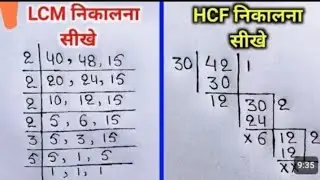 LCM निकालना
सीखे
2 | 40, 48, 15
2 | 20, 24, 15
2 | 10, 12, 15
2 | 5, 6, 15
3 | 5, 3, 15
5 | 5, 1, 5
1, 1, 1
HCF निकालना
सीखे
30 | 42 | 1
30
12 | 30 | 2
24
×6 | 12 | 2
12
××
9:35